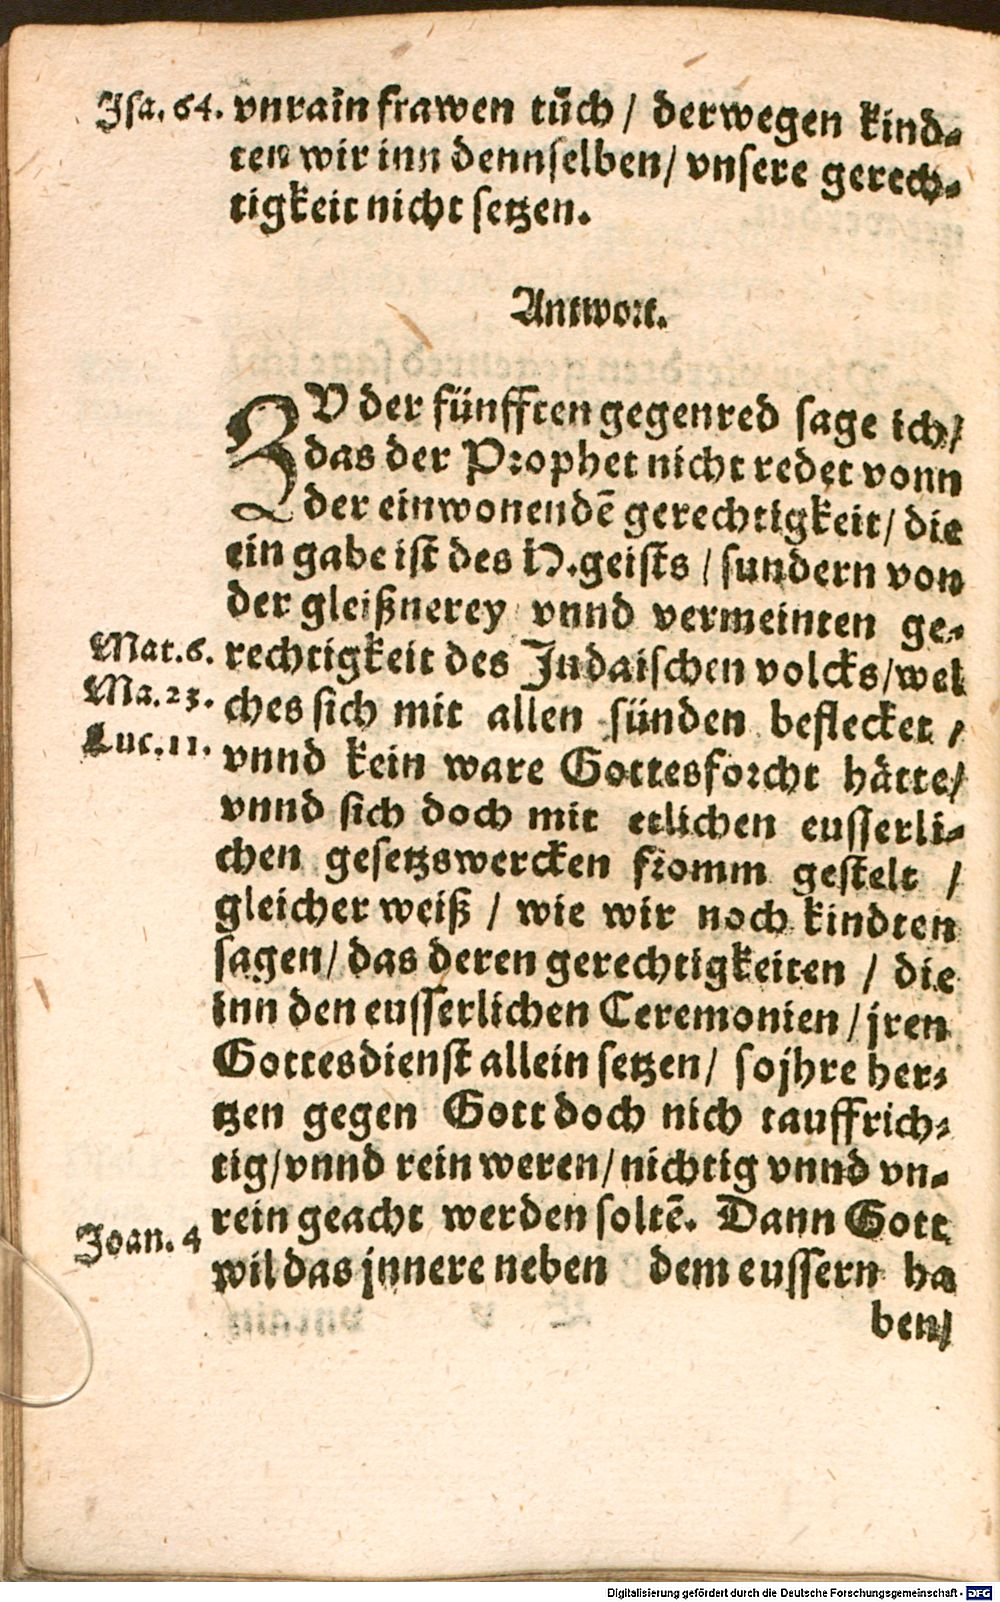 Jsa. 64. vnrain frawen tůch / derwegen kind-
ten wir inn dennselben / vnsere gerech-
tigkeit nicht setzen.
Antwort.
ZV der fünfften gegenred sage ich /
das der Prophet nicht redet vonn
der einwonendē gerechtigkeit / die
ein gabe ist des H. geists / sundern von
der gleißnerey vnnd vermeinten ge-
Mat. 6. rechtigkeit des Judaischen volcks / wel
Ma. 23. ches sich mit allen sünden beflecket /
Luc. 11. vnnd kein ware Gottesforcht hätte /
vnnd sich doch mit etlichen eusserli-
chen gesetzswercken fromm gestelt /
gleicher weiß / wie wir noch kindten
sagen / das deren gerechtigkeiten / die
inn den eusserlichen Ceremonien / jren
Gottesdienst allein setzen / so jhre her-
tzen gegen Gott doch nich tauffrich-
tig / vnnd rein weren / nichtig vnnd vn-
rein geacht werden soltē. Dann Gott
Joan. 4 wil das jnnere neben dem eussern ha
ben /
Digitalisierung gefördert durch die Deutsche Forschungsgemeinschaft - DFG